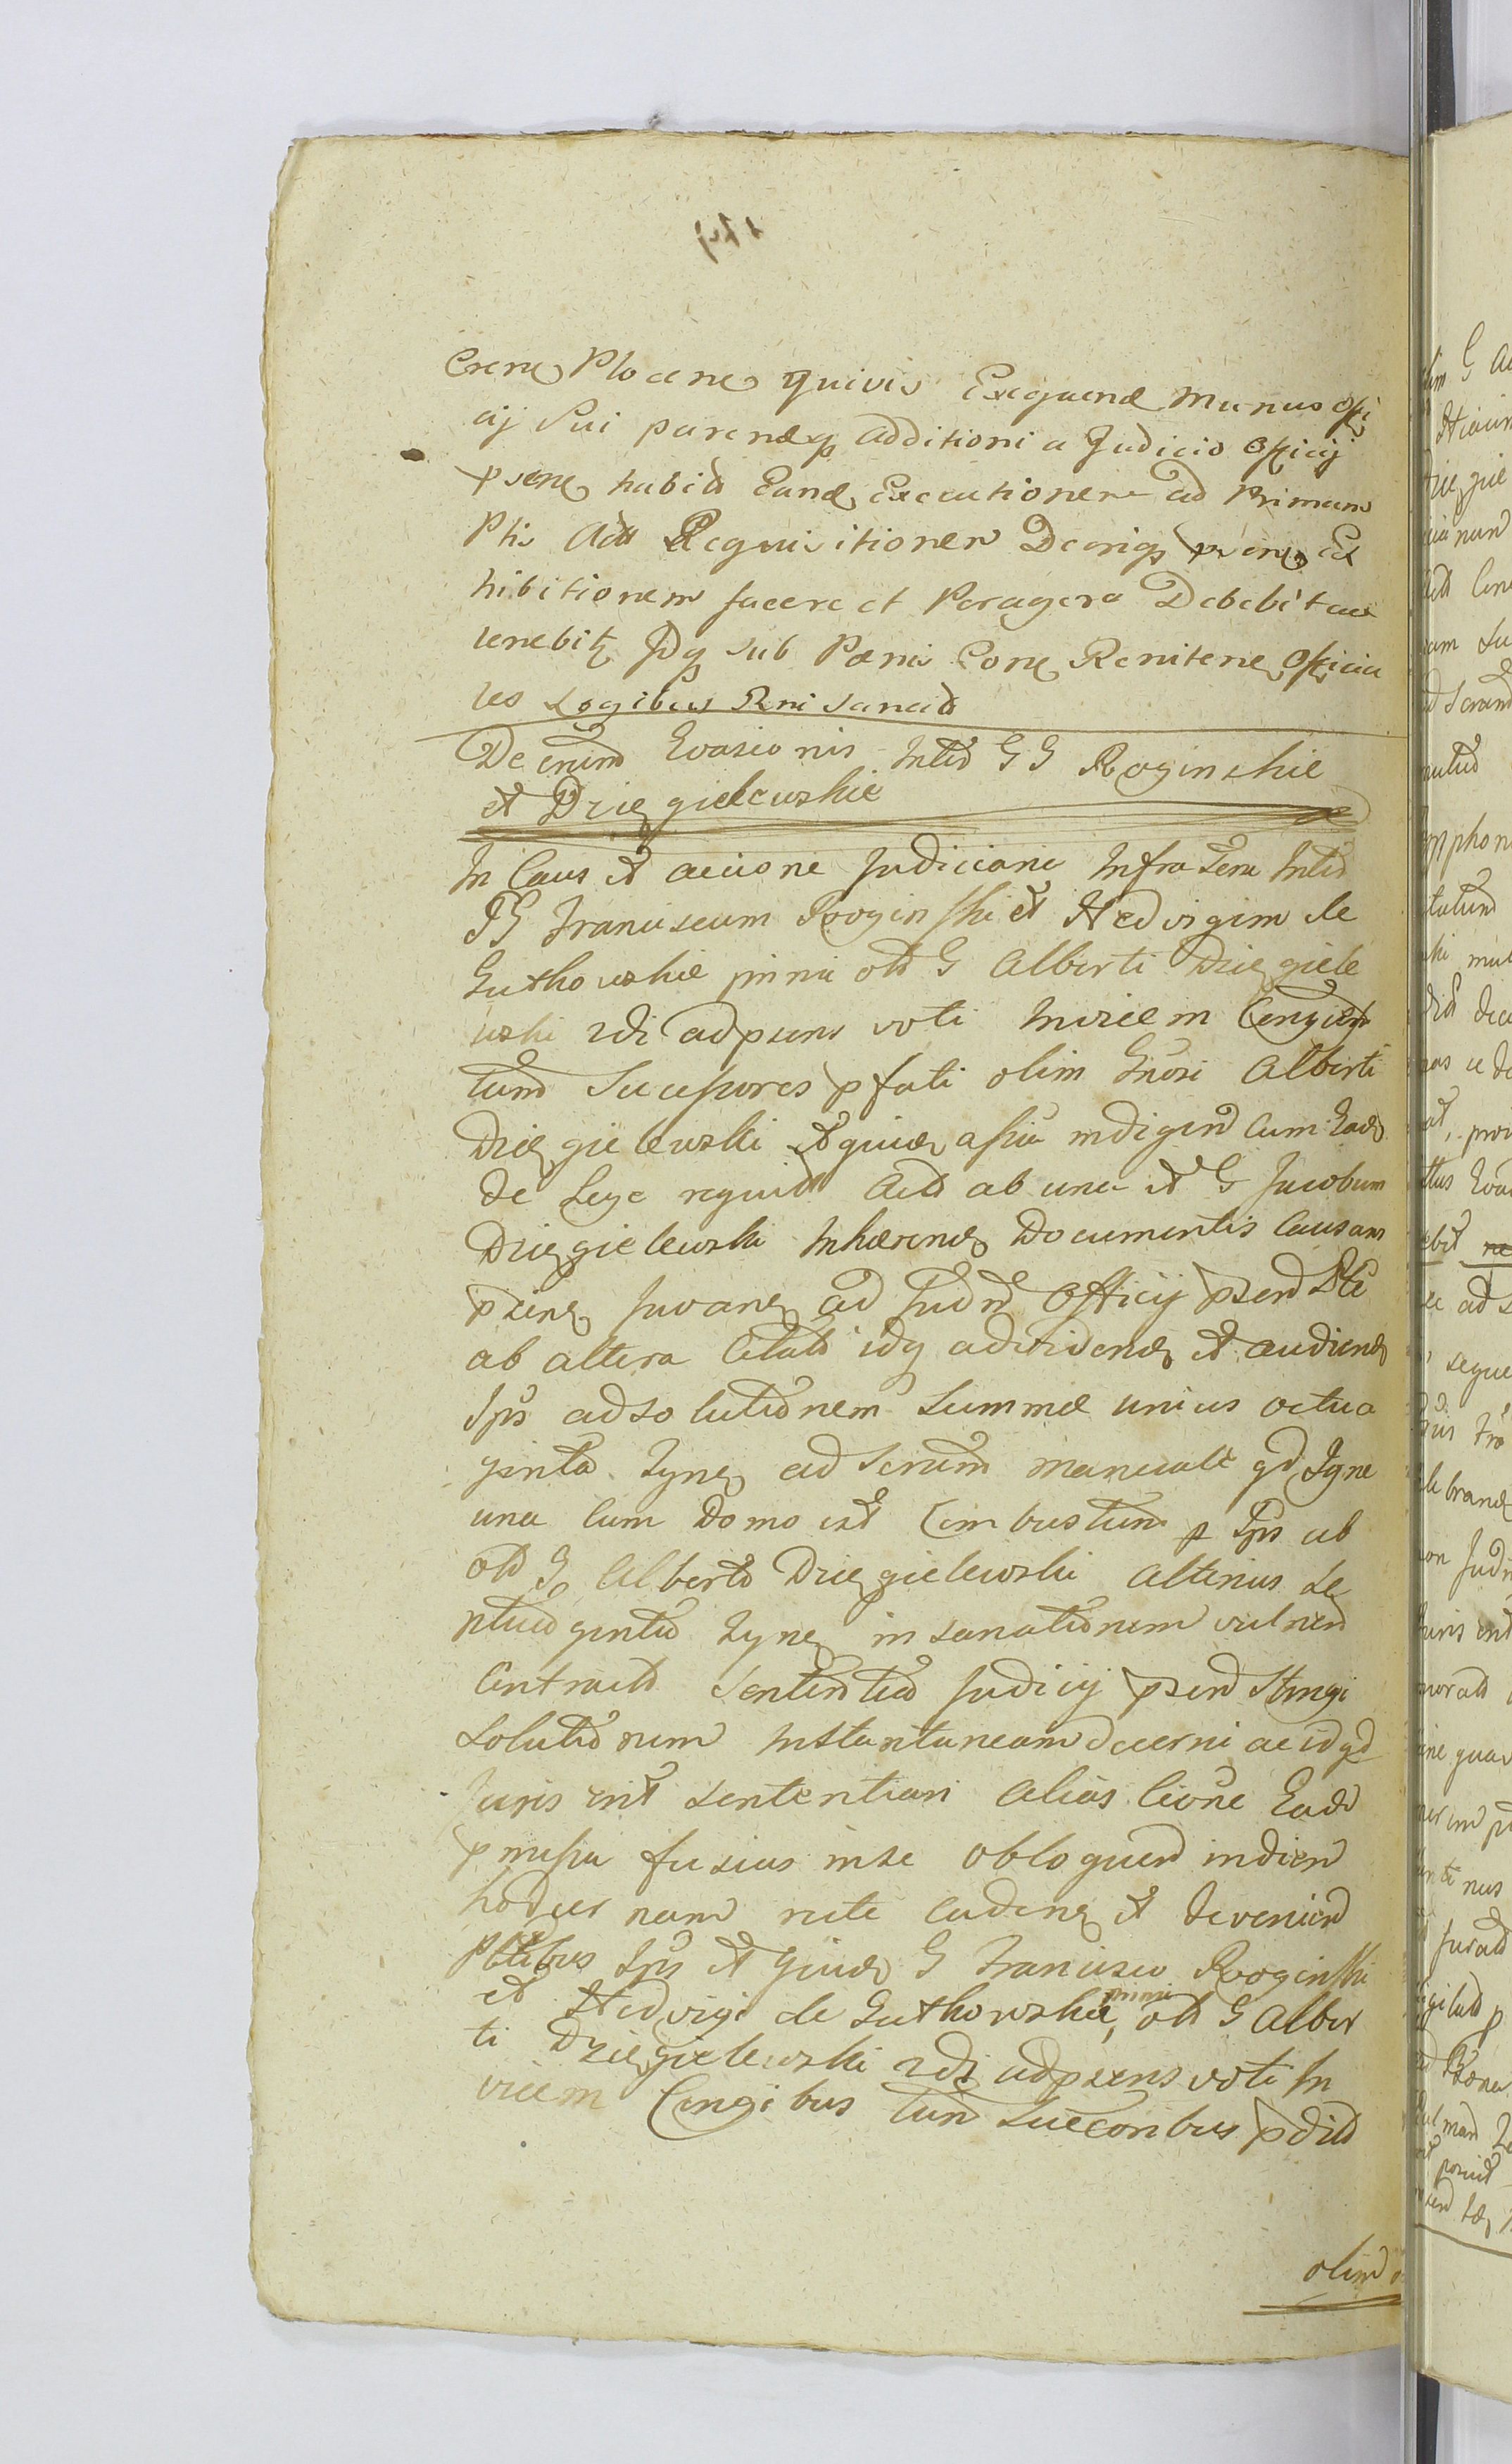 Crcne Plocene quivis Exequend Munus Offi
cij Sui parendq additioni a Judicio Officij
psene habita Eand Executionem ad Primam
Ptis Acts Requisitionem Decriq psene Ex
hibitionem facere et Peragere Debebit ac
tenebit Idq sub Pœnis Cone Renitene Officia
les Legibus Rni Sancits
Decrum Evasionis Inter GG Roginskie
et Dzięgielewskie
In Caus et accione Judiciaria Infra Scra Inter
GG Franciscum Roginski et Hedvigim de
Gutkowskie primi olt G Alberti Dzięgiele
wski 2di ad psens voti Invicem Conjuges
tum Sucessores pfati olim Gnosi Alberti
Dzięgielewski et quidem assia indigend cum Eade
de Lege requisit Acts ab una et G Jacobum
Dzięgielewski Inhærend Documentis Causam
psene Juvane ad Judm Officij psend Ptė
ab altera Citatt idq ad vidend et audiend
Ipis ad solutionem Summæ unius octua
ginta Tyne ad Scrum manuale qd Igne
una cum Domo est Combustum p Ipis ab
olt G Alberto Dzięgielewski alterius Se
ptuaginta Tyne in sanationem vulnerd
Contracts Sententia Judicij psend Stringi
Solutionem Instantaneam decerni ac id qd
Juris erit sententiari alias Cione Eade
pmissa fusius in se obloquend in diem
hodier nam rite cadene et deveniend
Ptibus Ipis et quidem G Francisco Roginski
et Hedvigi de Gutkowskie primi olt G Alber
ti Dzięgielewski 2di ad psens voti In
vicem Congibus tum Succoribus pdict
olim